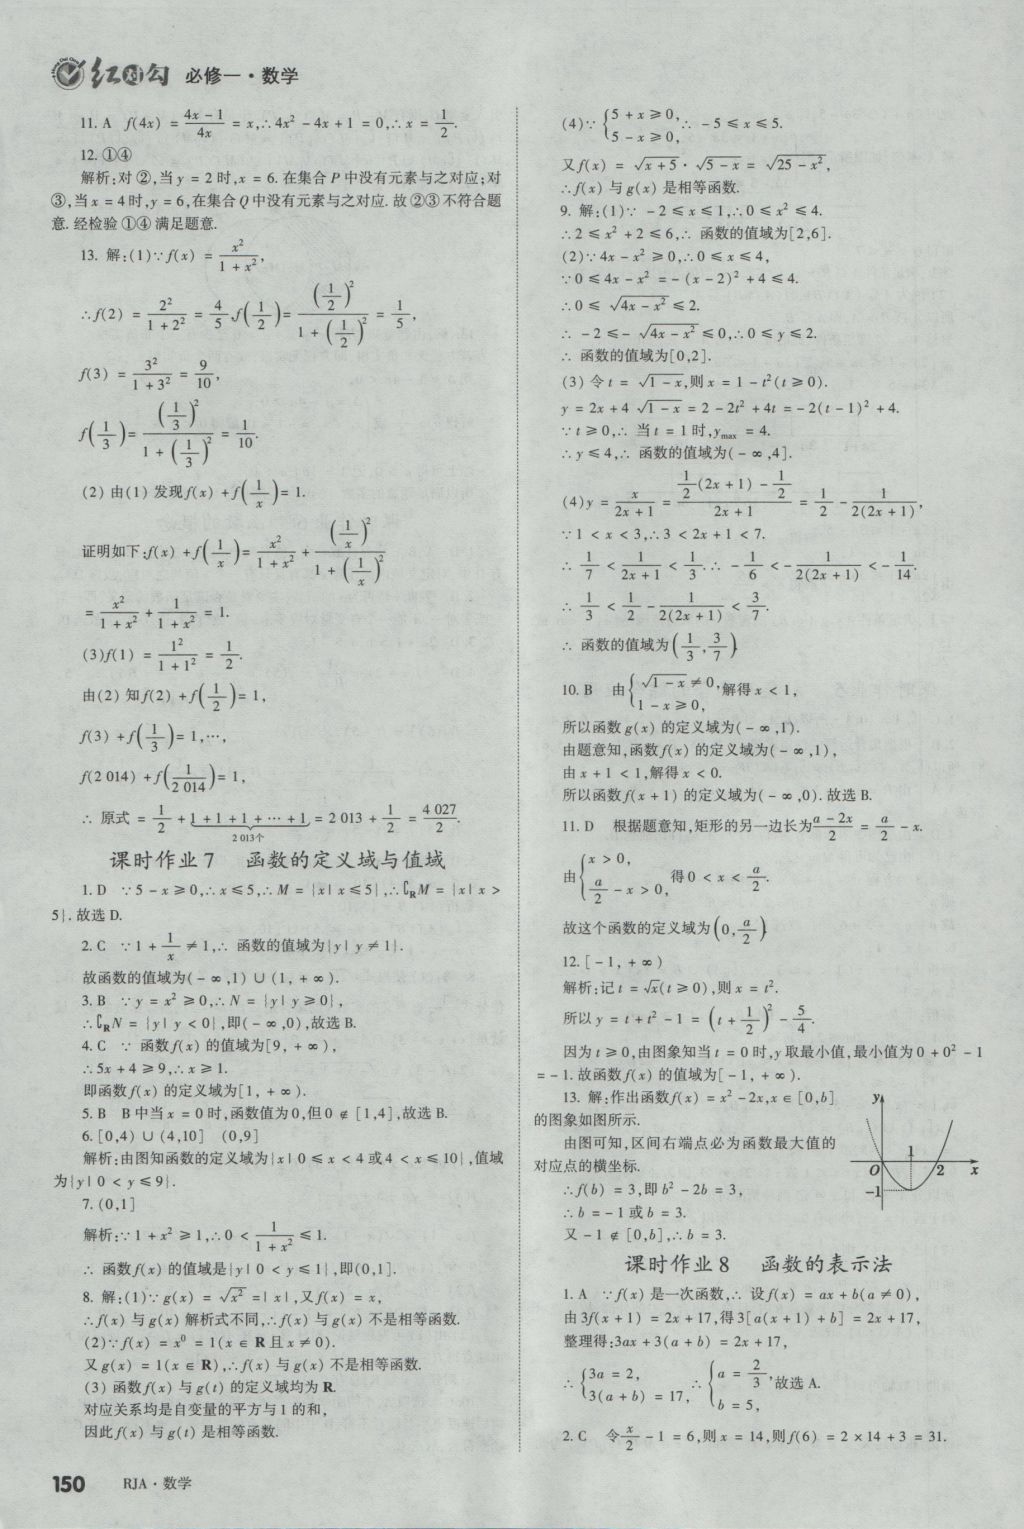 红对勾 必修一·数学
11. A f(4x) = (4x-1)/(4x) = x,∴4x² - 4x + 1 = 0,∴x = 1/2.
12. ①④
解析:对②,当y = 2时,x = 6. 在集合P中没有元素与之对应;对
③,当x = 4时,y = 6,在集合Q中没有元素与之对应. 故②③不符合题
意. 经检验①④满足题意.
13. 解:(1)∵f(x) = x²/(1+x²),
∴f(2) = 2²/(1+2²) = 4/5,f(1/2) = (1/2)²/(1+(1/2)²) = 1/5,
f(3) = 3²/(1+3²) = 9/10,
f(1/3) = (1/3)²/(1+(1/3)²) = 1/10.
(2) 由(1)发现f(x) + f(1/x) = 1.
证明如下:f(x) + f(1/x) = x²/(1+x²) + (1/x)²/(1+(1/x)²)
= x²/(1+x²) + 1/(1+x²) = 1.
(3)f(1) = 1²/(1+1²) = 1/2.
由(2)知f(2) + f(1/2) = 1,
f(3) + f(1/3) = 1,…,
f(2 014) + f(1/2 014) = 1,
∴ 原式 = 1/2 + 1 + 1 + 1 + … + 1 = 2 013 + 1/2 = 4 027/2.
2 013个
课时作业7 函数的定义域与值域
1. D ∵5 - x ≥ 0,∴x ≤ 5,∴M = {x| x ≤ 5},∴∁RM = {x| x >
5}. 故选D.
2. C ∵1 + 1/x ≠ 1,∴ 函数的值域为{y| y ≠ 1}.
故函数的值域为(-∞,1) ∪ (1, +∞).
3. B ∵y = x² ≥ 0,∴N = {y| y ≥ 0},
∴∁RN = {y| y < 0},即(-∞,0),故选B.
4. C ∵ 函数f(x)的值域为[9, +∞),
∴5x + 4 ≥ 9,∴x ≥ 1.
即函数f(x)的定义域为[1, +∞).
5. B B中当x = 0时,函数值为0,但0 ∉ [1,4],故选B.
6. [0,4) ∪ (4,10] (0,9]
解析:由图知函数的定义域为{x| 0 ≤ x < 4或4 < x ≤ 10},值域
为{y| 0 < y ≤ 9}.
7. (0,1]
解析:∵1 + x² ≥ 1,∴0 < 1/(1+x²) ≤ 1.
∴ 函数f(x)的值域是{y| 0 < y ≤ 1},即(0,1].
8. 解:(1)∵g(x) = √x² = |x|,又f(x) = x,
∴f(x)与g(x)解析式不同,∴f(x)与g(x)不是相等函数.
(2)∵f(x) = x⁰ = 1(x ∈ R且x ≠ 0).
又g(x) = 1(x ∈ R),∴f(x)与g(x)不是相等函数.
(3) 函数f(x)与g(t)的定义域均为R.
对应关系均是自变量的平方与1的和,
因此f(x)与g(t)是相等函数.
(4)∵ {5 + x ≥ 0, 5 - x ≥ 0, ∴ -5 ≤ x ≤ 5.
又f(x) = √(x+5)·√(5-x) = √(25-x²),
∴f(x)与g(x)是相等函数.
9. 解:(1)∵ -2 ≤ x ≤ 1,∴0 ≤ x² ≤ 4.
∴2 ≤ x² + 2 ≤ 6,∴ 函数的值域为[2,6].
(2)∵4x - x² ≥ 0,∴0 ≤ x ≤ 4,
∵0 ≤ 4x - x² = -(x - 2)² + 4 ≤ 4.
∴0 ≤ √(4x-x²) ≤ 2.
∴ -2 ≤ -√(4x-x²) ≤ 0,∴0 ≤ y ≤ 2.
∴ 函数的值域为[0,2].
(3) 令t = √(1-x),则x = 1 - t²(t ≥ 0).
y = 2x + 4√(1-x) = 2 - 2t² + 4t = -2(t - 1)² + 4.
∵t ≥ 0,∴ 当t = 1时,ymax = 4.
∴y ≤ 4,∴ 函数的值域为(-∞,4].
(4)y = x/(2x+1) = (1/2(2x+1) - 1/2)/(2x+1) = 1/2 - 1/(2(2x+1)),
∵1 < x < 3,∴3 < 2x + 1 < 7.
∴ 1/7 < 1/(2x+1) < 1/3.∴ -1/6 < -1/(2(2x+1)) < -1/14.
∴ 1/3 < 1/2 - 1/(2(2x+1)) < 3/7.
∴ 函数的值域为(1/3,3/7).
10. B 由{√(1-x) ≠ 0, 1 - x ≥ 0, 解得x < 1,
所以函数g(x)的定义域为(-∞,1).
由题意知,函数f(x)的定义域为(-∞,1),
由x + 1 < 1,解得x < 0.
所以函数f(x + 1)的定义域为(-∞,0). 故选B.
11. D 根据题意知,矩形的另一边长为(a-2x)/2 = a/2 - x.
由{x > 0, a/2 - x > 0, 得0 < x < a/2.
故这个函数的定义域为(0,a/2).
12. [-1, +∞)
解析:记t = √x(t ≥ 0),则x = t².
所以y = t + t² - 1 = (t + 1/2)² - 5/4.
因为t ≥ 0,由图象知当t = 0时,y取最小值,最小值为0 + 0² - 1
= -1. 故函数f(x)的值域为[-1, +∞).
13. 解:作出函数f(x) = x² - 2x,x ∈ [0,b]
的图象如图所示.
由图可知,区间右端点必为函数最大值的
对应点的横坐标.
∴f(b) = 3,即b² - 2b = 3,
∴b = -1或b = 3.
又 -1 ∉ [0,b],∴b = 3.
y
1
O 2 x
-1
课时作业8 函数的表示法
1. A ∵f(x)是一次函数,∴ 设f(x) = ax + b(a ≠ 0),
由3f(x + 1) = 2x + 17,得3[a(x + 1) + b] = 2x + 17,
整理得:3ax + 3(a + b) = 2x + 17,
∴ {3a = 2, 3(a + b) = 17, ∴ {a = 2/3, b = 5, 故选A.
2. C 令x/2 - 1 = 6,则x = 14,则f(6) = 2 × 14 + 3 = 31.
150 RJA·数学